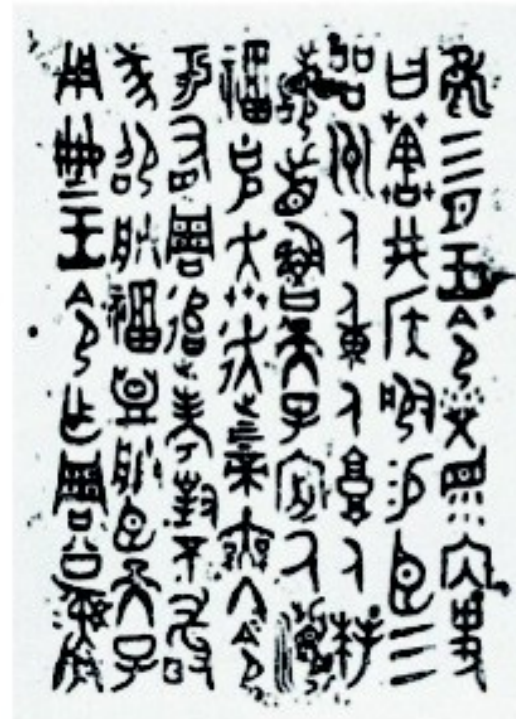 隹三月王令榮眔內史
曰𦯧井侯服易臣三
品州人重人𩫏人拜
稽首魯天子𢓊厥瀕
福克奔走上下帝無冬令
于右周追考對不敢
㒸卲朕福盟朕臣天子
用冊王令乍周公彝